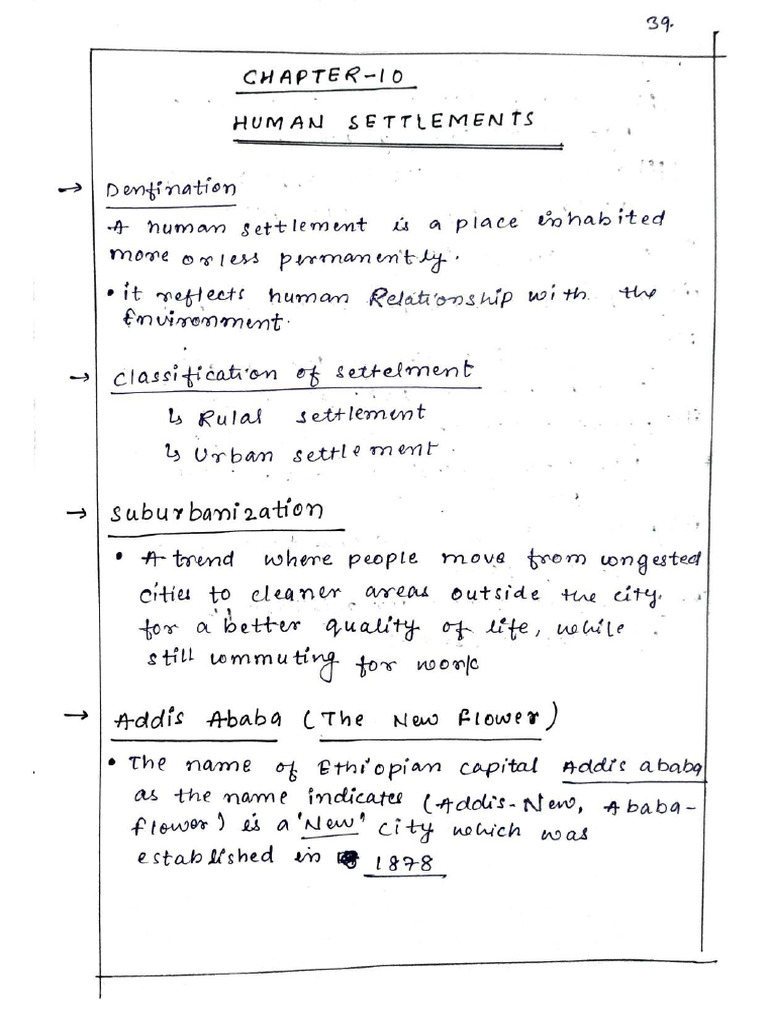 39.
CHAPTER-10
HUMAN SETTLEMENTS
→ Denfination
A human settlement is a place inhabited
more or less permanently.
• it reflects human Relationship with the
Environment.
→ Classification of settelment
↳ Rulal settlement
↳ Urban settlement.
→ Suburbanization
• A trend where people move from congested
cities to cleaner areas outside the city.
for a better quality of life, while
still commuting for work
→ Addis Ababa (The New Flower)
• The name of Ethiopian capital Addis ababa
as the name indicates (Addis-New, Ababa-
flower) is a 'New' city which was
established in 1878